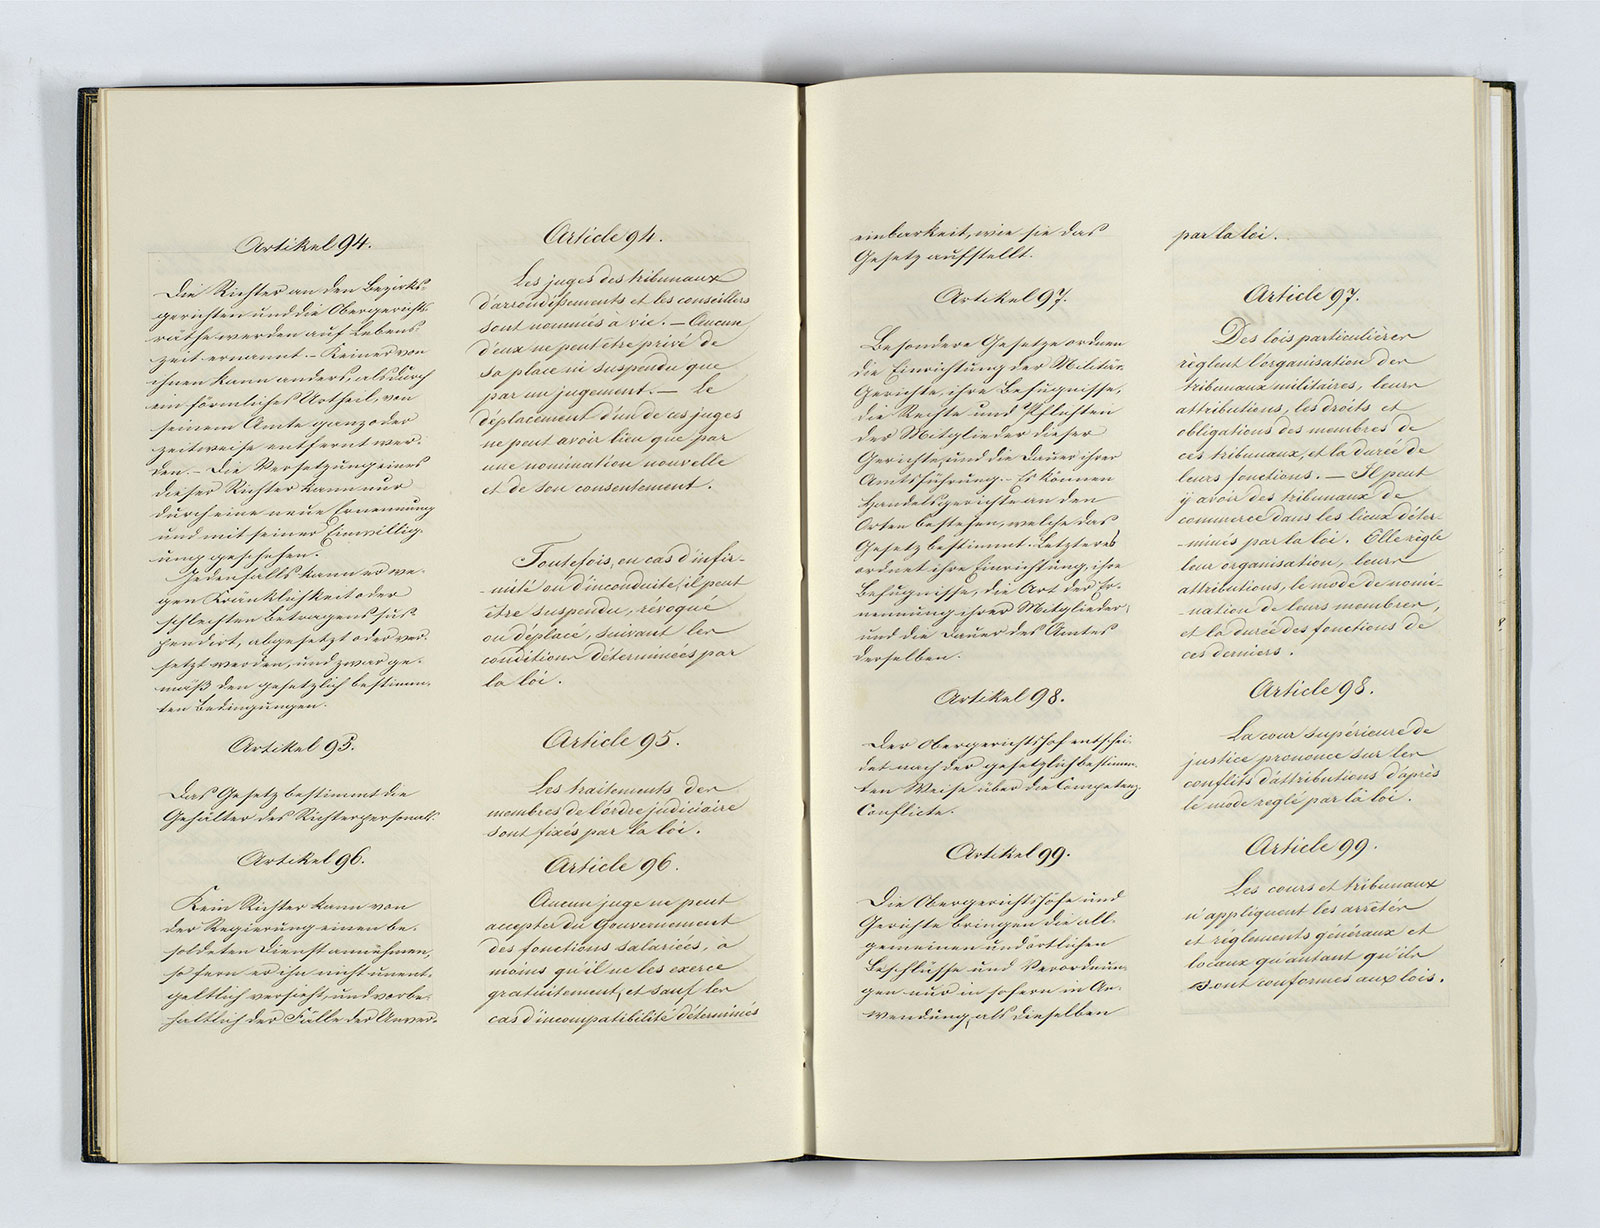 Artikel 94.
Die Richter an den Bezirks-
gerichten und die Obergerichts-
räthe werden auf Lebens
zeit ernannt. – Keiner von
ihnen kann anders, als durch
ein förmliches Urtheil, von
seinem Amte ganz oder
zeitweise entfernt wer-
den. – Die Versetzung eines
dieser Richter kann nur
durch eine neue Ernennung
und mit seiner Einwillig-
ung geschehen.
Jedenfalls kann er we-
gen Kränklichkeit oder
schlechten Betragens sus-
pendirt, abgesetzt oder ver-
setzt werden, und zwar ge-
mäß den gesetzlich bestimm-
ten Bedingungen.
Artikel 95.
Das Gesetz bestimmt die
Gehälter des Richterpersonals.
Artikel 96.
Kein Richter kann von
der Regierung einen be-
soldeten Dienst annehmen,
so fern er ihn nicht unent-
geltlich versieht, und vorbe-
haltlich der Fälle der Unver-
Article 94.
Les juges des tribunaux
d'arrondissements et les conseillers
sont nommés à vie. – Aucun
d'eux ne peut être privé de
sa place ni suspendu que
par un jugement. – Le
déplacement d'un de ces juges
ne peut avoir lieu que par
une nomination nouvelle
et de son consentement.
Toutefois, en cas d'infir-
-mité ou d'inconduite, il peut
être suspendu, révoqué
ou déplacé, suivant les
conditions déterminées par
la loi.
Article 95.
Les traitements des
membres de l'ordre judiciaire
sont fixés par la loi.
Article 96.
Aucun juge ne peut
accepter du Gouvernement
des fonctions salariées, à
moins qu'il ne les exerce
gratuitement, et sauf les
cas d'incompatibilité déterminés
einbarkeit, wie sie das
Gesetz aufstellt.
Artikel 97.
Besondere Gesetze ordnen
die Einrichtung der Militär-
Gerichte, ihre Befugnisse,
die Rechte und Pflichten
der Mitglieder dieser
Gerichte, und die Dauer ihrer
Amtsführung. – Es können
Handelsgerichte an den
Orten bestehen, welche das
Gesetz bestimmt. Letzteres
ordnet ihre Einrichtung, ihre
Befugnisse, die Art der Er-
nennung ihrer Mitglieder,
und die Dauer des Amtes
derselben.
Artikel 98.
Der Obergerichtshof entschei-
det nach der gesetzlich bestimm-
ten Weise über die Competenz-
Conflicte.
Artikel 99.
Die Obergerichtshöfe und
Gerichte bringen die all-
gemeinen und örtlichen
Beschlüsse und Verordnun-
gen nur in sofern in An-
wendung, als dieselben
par la loi.
Article 97.
Des lois particulières
règlent l'organisation des
tribunaux militaires, leurs
attributions, les droits et
obligations des membres de
ces tribunaux, et la durée de
leurs fonctions. – Il peut
y avoir des tribunaux de
commerce dans les lieux déter-
-minés par la loi. Elle règle
leur organisation, leurs
attributions, le mode de nomi-
-nation de leurs membres,
et la durée des fonctions de
ces derniers.
Article 98.
La cour supérieure de
justice prononce sur les
conflits d'attributions d'après
le mode reglé par la loi.
Article 99.
Les cours et tribunaux
n'appliquent les arrêtés
et réglements généraux et
locaux qu'autant qu'ils
sont conformes aux lois.